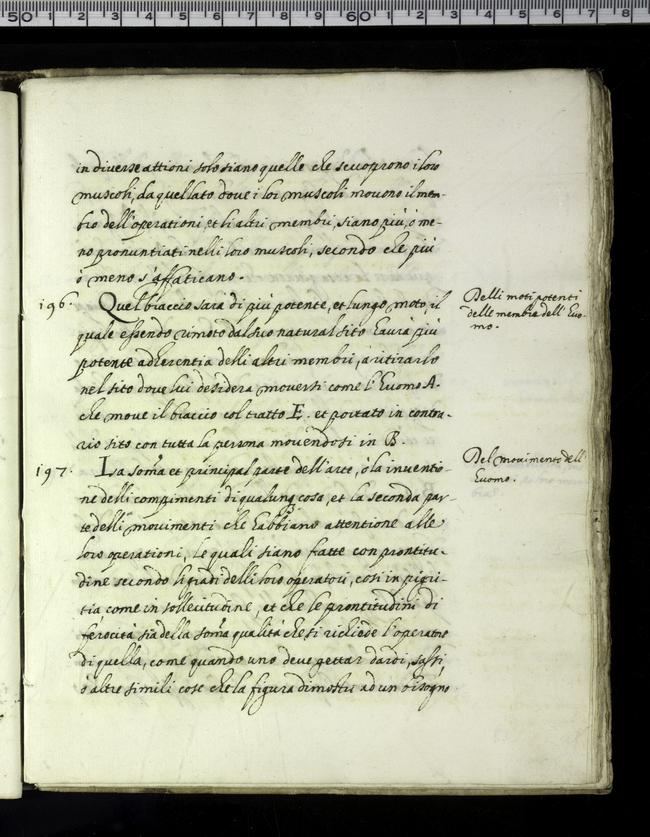 in diverse attioni solo siano quelle che scuoprono i loro
muscoli, da quel lato dove i lor muscoli movono il mem-
bro dell'operationi, et li altri membri, siano più, ò me-
no pronuntiati nelli loro muscoli, secondo che più
ò meno s'affaticano.
196. Quel braccio sarà di più potente, et lungo moto, il
quale essendo rimoto dal suo natural sito havrà più
potente adherentia delli altri membri, à ritirarlo
nel sito dove lui desidera moversi come l'huomo A.
che move il braccio col tratto E. et portato in contra-
rio sito con tutta la persona movendosi in B.
Delli moti potenti
delle membra dell'huo-
mo.
197. La som̃a et principal parte dell'arte, è la inventio-
ne delli compimenti di qualunq̃ cosa, et la seconda par-
te delli movimenti che habbiano attentione alle
loro operationi, le quali siano fatte con prontitu-
dine secondo li gradi delli loro operatori, così in pigri-
tia come in sollecitudine, et che le prontitudini di
ferocità sia della som̃a qualità che si richiede l'operatore
di quella, come quando uno deve gettar dardi, sassi,
ò altre simili cose che la figura dimostri ad un bisogno
Del movimento dell'
huomo.